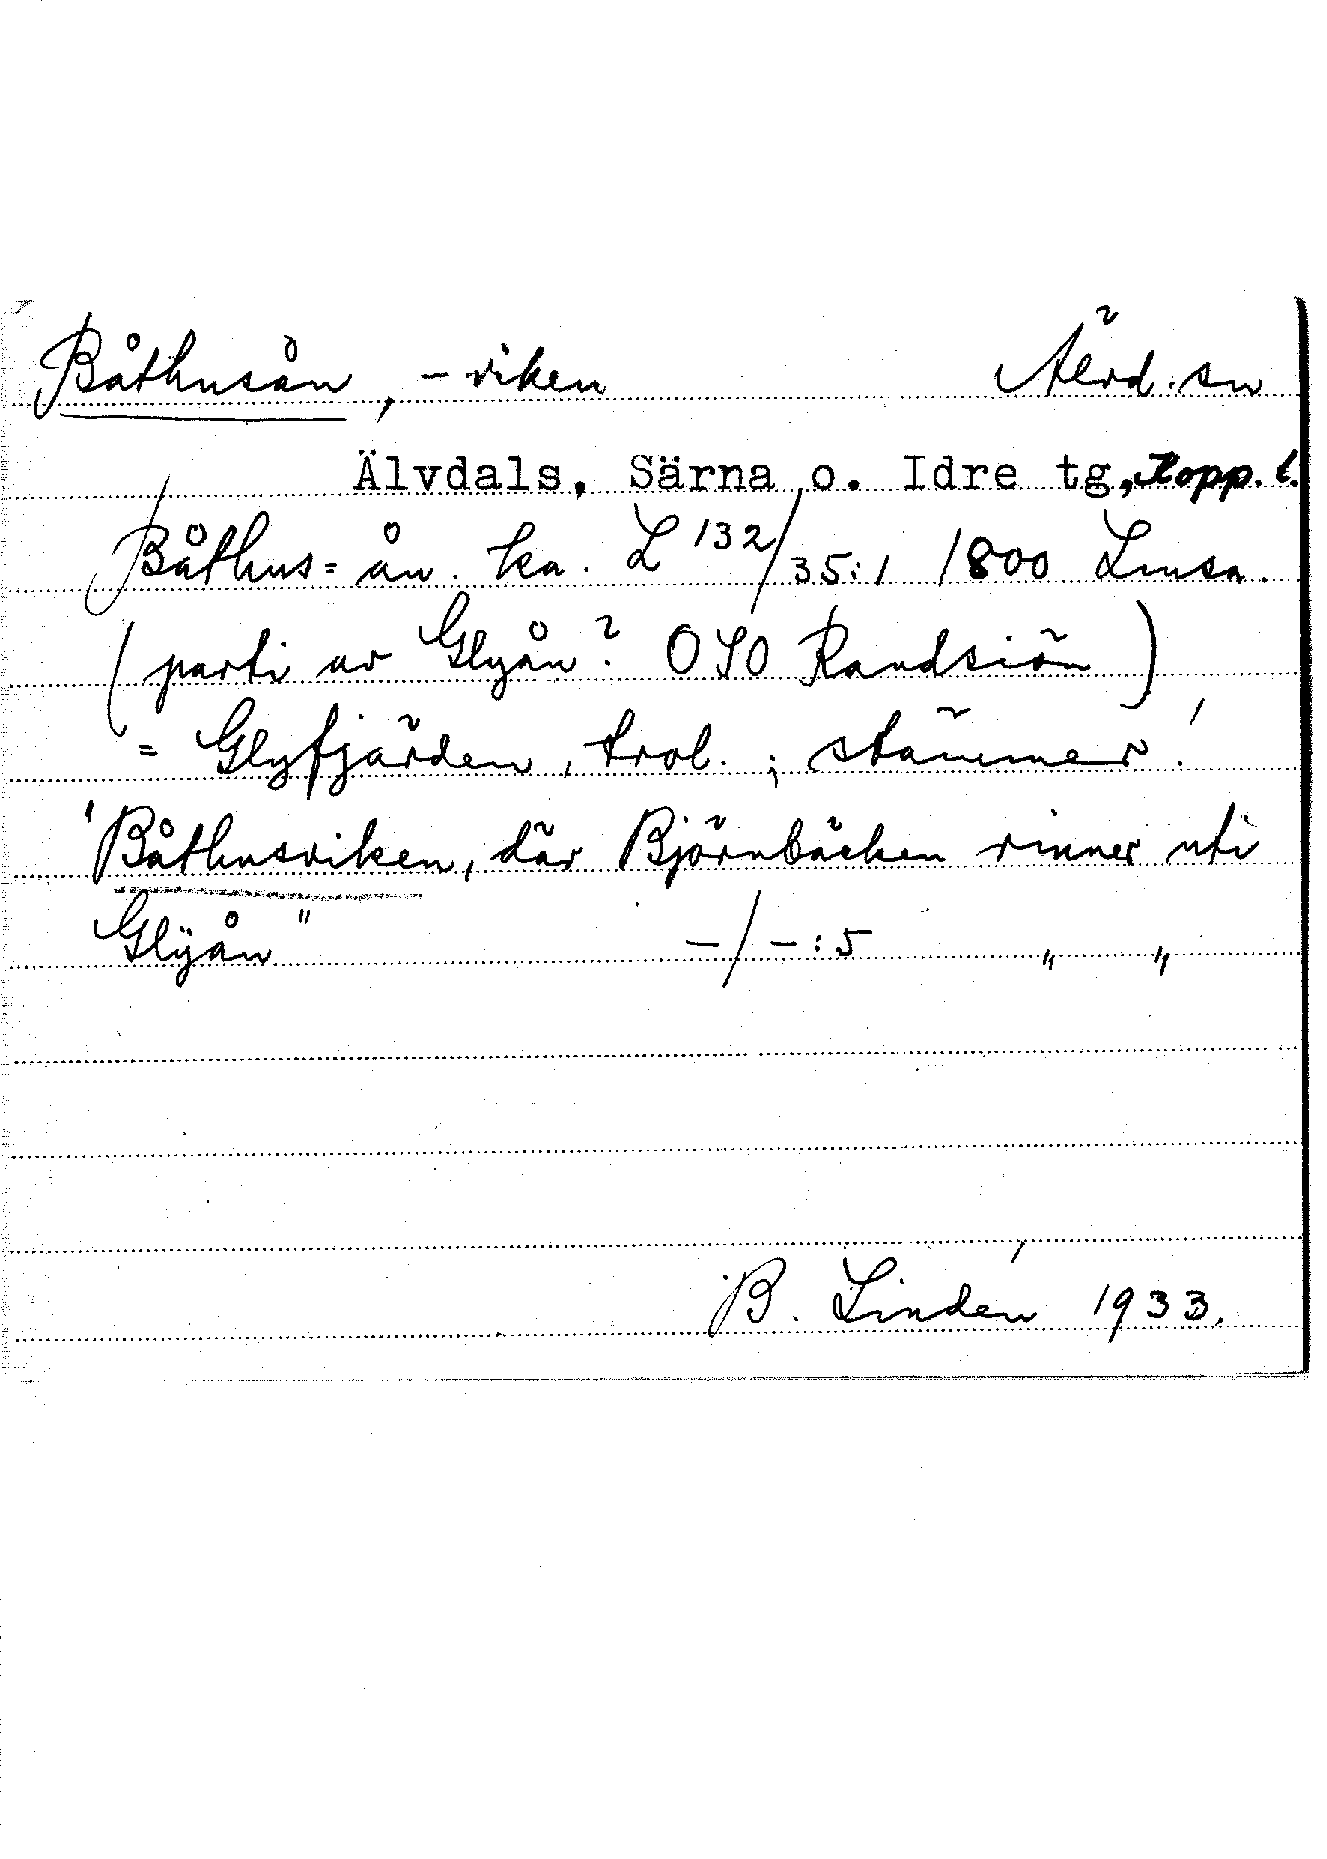 Båthusån, -viken Älvd. sn
Älvdals, Särna o. Idre tg, Kopp. l.
Båthus=ån. ka. L 132/35:1 1800 Lmsa.
(parti av Glyån? OSO Randsiön)
= Glyfjärden, trol.; stämmer!
"Båthusviken, där Björnbäcken rinner uti
Glÿån" -/-:5 " "
B. Lindén 1933.